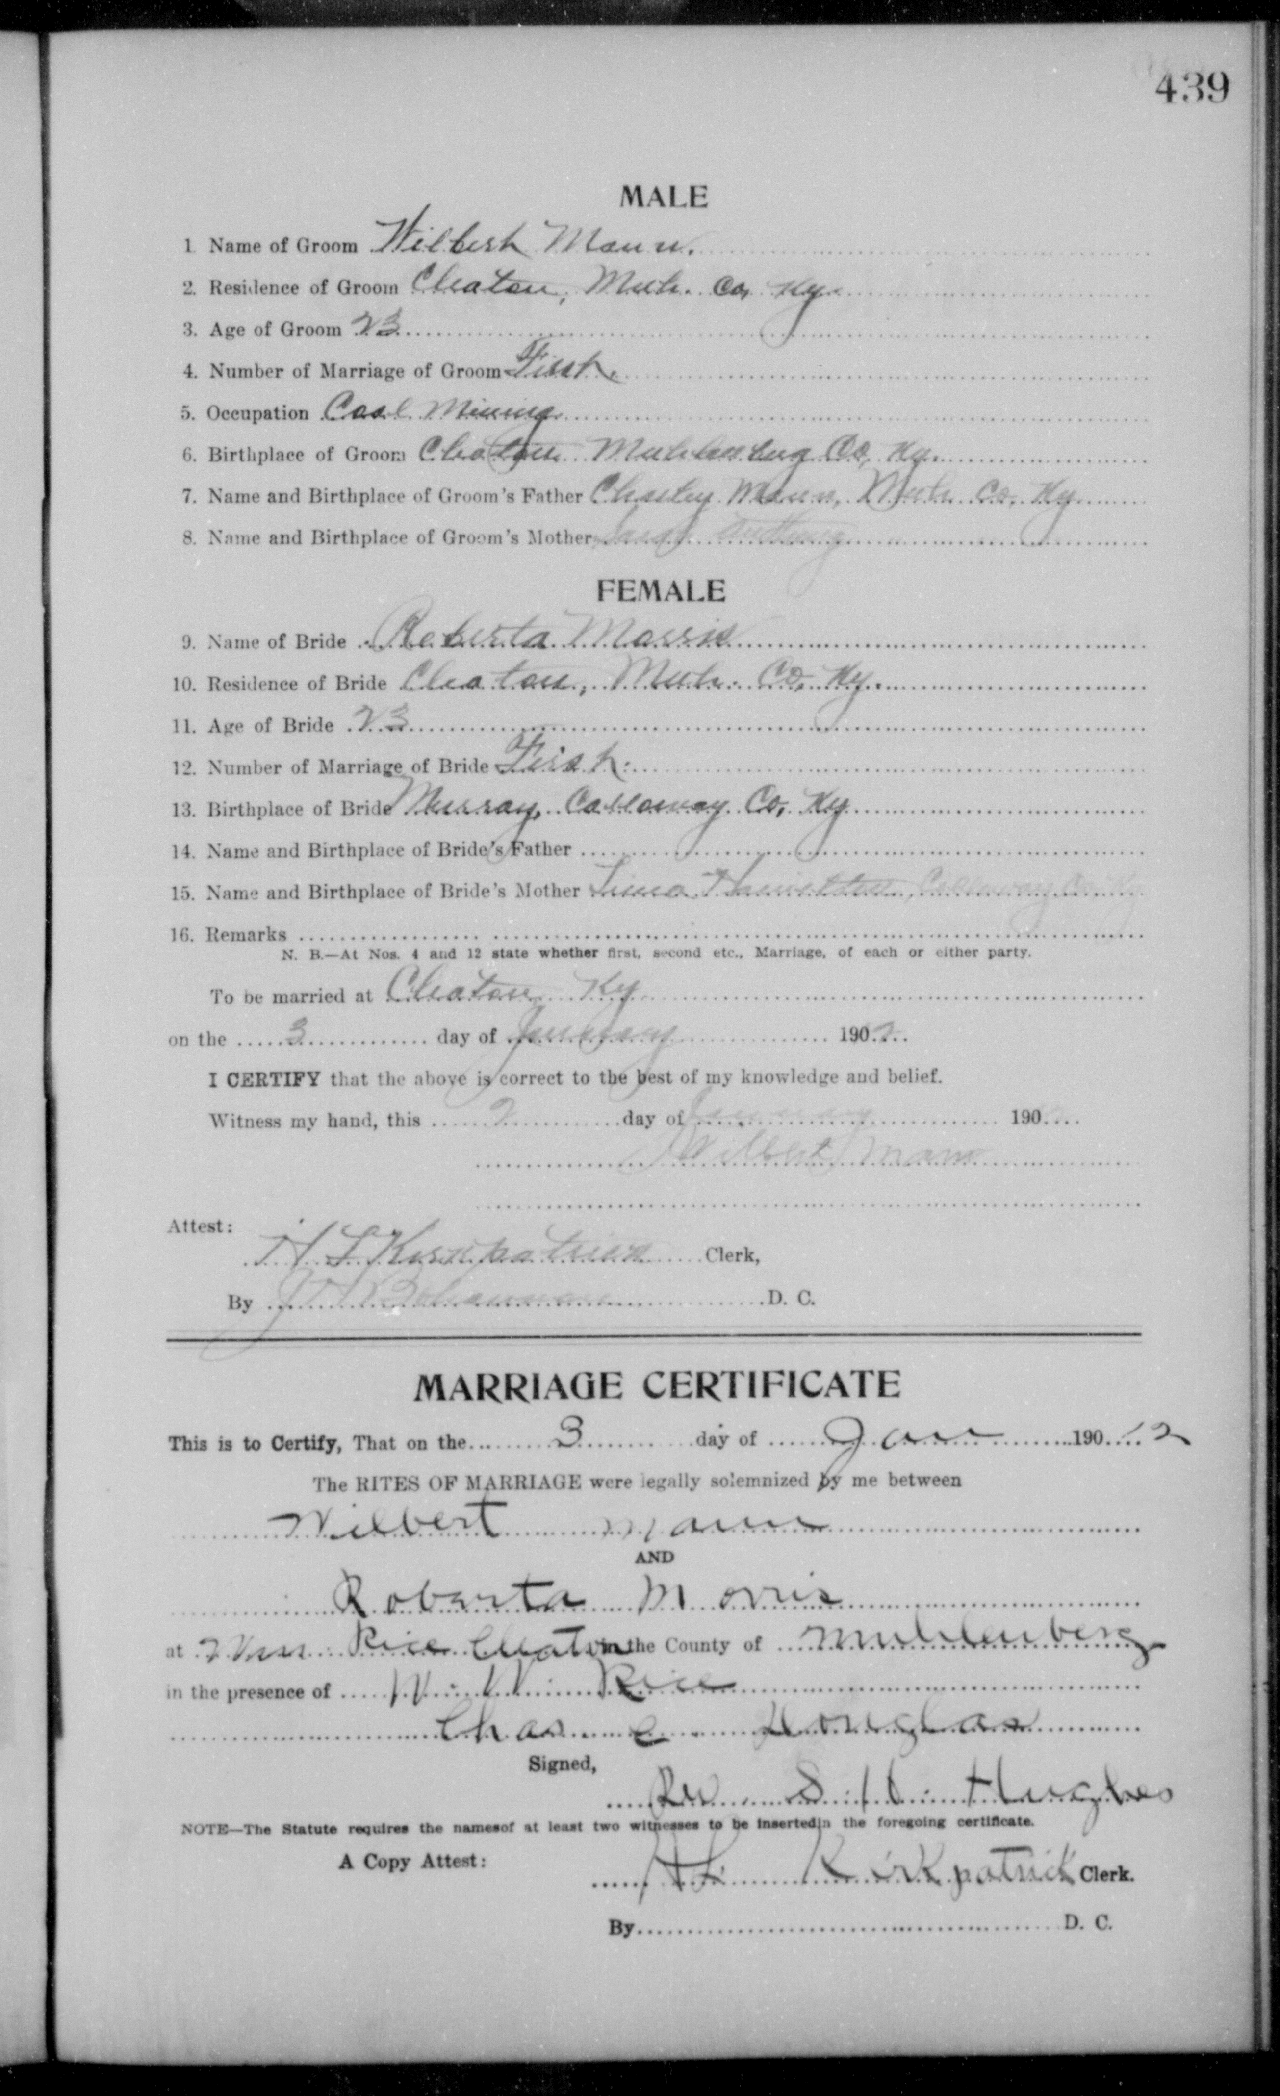 439
MALE
1. Name of Groom Wilbert Mann.
2. Residence of Groom Cleaton, Muh. Co, Ky.
3. Age of Groom 23
4. Number of Marriage of Groom First.
5. Occupation Coal Mining
6. Birthplace of Groom Cleaton Muhlenberg Co, Ky.
7. Name and Birthplace of Groom's Father Charley Mann, Muh. Co. Ky
8. Name and Birthplace of Groom's Mother
FEMALE
9. Name of Bride Roberta Morris
10. Residence of Bride Cleaton, Muh. Co, Ky.
11. Age of Bride 23
12. Number of Marriage of Bride First.
13. Birthplace of Bride Murray, Calloway Co, Ky
14. Name and Birthplace of Bride's Father
15. Name and Birthplace of Bride's Mother Calloway Co Ky
16. Remarks
N. B.—At Nos. 4 and 12 state whether first, second etc., Marriage, of each or either party.
To be married at Cleaton Ky
on the 3 day of January 1902
I CERTIFY that the above is correct to the best of my knowledge and belief.
Witness my hand, this 2 day of January 190
Wilbert Mann
Attest:
H L Kirkpatrick Clerk,
By Bohannon D. C.
MARRIAGE CERTIFICATE
This is to Certify, That on the 3 day of Jan 190 12
The RITES OF MARRIAGE were legally solemnized by me between
Wilbert Mann
AND
Roberta Morris
at Rice Cleaton in the County of Muhlenberg
in the presence of W. W. Rice
Chas E Douglas
Signed,
Rev. S. H. Hughes
NOTE—The Statute requires the namesof at least two witnesses to be insertedin the foregoing certificate.
A Copy Attest:
H L Kirkpatrick Clerk.
By D. C.